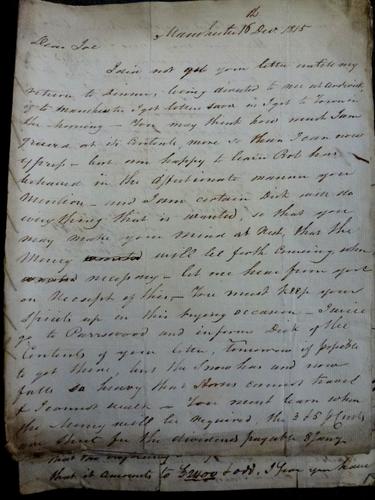 Manchester 16th Decr 1815
Dear Joe
I did not get your letter untill my
return to dinner, being directed to me at
to Manchester I got letters soon as I got to Town in
the morning - You may think how much I am
grieved at its Contents, more so than I can now
express - but am happy to learn Bob has
behaved in the affectionate manner you
Mention - and I am certain Dick will do
every thing that is wanted, so that you
may make your mind at Rest, that the
Money will be forth Coming when
necessary - let me hear from you
on Receipt of this - You must keep your
Spirits up in this trying occasion - I
go to and inform Dick of the
Contents of your letter, Tomorrow if possible
to get there, but the Snow has and now
falls so heavy that Horses cannot travel
& I cannot walk - You must learn when
the Money will be required, the 3 & 5 pCents
are Shut for the dividends payable 5 Jany
that it amounts to £2400 & odd. I fear you have